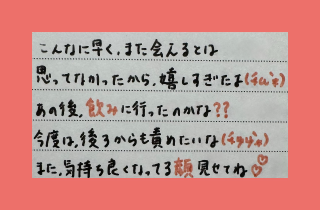 こんなに早く、また会えるとは
思ってなかったから、嬉しすぎたよ
あの後、飲みに行ったのかな??
今度は、後ろからも責めたいな
また、気持ち良くなってる顔見せてね♡♡